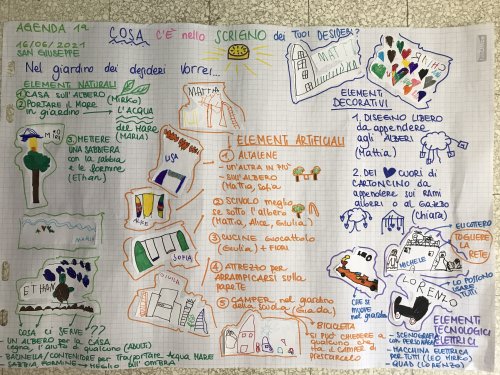 AGENDA 19
16/06/2021
SAN GIUSEPPE
COSA C'È nello SCRIGNO dei TUOI DESIDERI?
Nel giardino dei desideri vorrei...
ELEMENTI NATURALI
① CASA sull'ALBERO (Mirko)
② PORTARE il MARE
in giardino → L'ACQUA
del MARE
(MARIA)
③ METTERE
UNA SABBIERA
con la sabbia
e le formine
(ETHAN)
MATTIA
USA
ALICE
SOFIA
GIULIA
MARIA
ETHAN
COSA ci SERVE??
UN ALBERO per la CASA
Legna, l'aiuto di qualcuno (adulti)
BACINELLA/CONTENITORE per Trasportare Acqua MARE
SABBIA, FORMINE → MEGLIO all'OMBRA
ELEMENTI ARTIFICIALI
① ALTALENE
- UN'ALTRA IN PIÙ
- SULL'ALBERO
(Mattia, Sofia)
② SCIVOLO meglio
se sotto l'albero
(Mattia, Alice, Giulia)
③ CUCINE GIOCATTOLO
(Giulia) + FIORI
④ ATTREZZO per
ARRAMPICARSI SULLA
PARETE
⑤ CAMPER nel giardino
della scuola (Giada)
* BICICLETTA
SI PUÒ CHIEDERE a
qualcuno che
ha il CAMPER di
prestarcelo
MATTI
CHIARA
ELEMENTI
DECORATIVI
1. DISEGNO LIBERO
da appendere
agli ALBERI
(Mattia)
2. DEI CUORI di
CARTONCINO da
appendere sui RAMI
alberi o al GAZEBO
(Chiara)
ELICOTTERO
TOGLIERE
LA RETE
LEO
MICHELLE
LO POSSONO
USARE
TUTTI
CHE SI
MUOVE nel giardino
LORENZO
ELEMENTI
TECNOLOGICI
ELETTRICI
- SCENOGRAFIA
con PERSONAGGI
- MACCHINA ELETTRICA
per TUTTI (LEO MIRKO)
- QUAD (LORENZO)